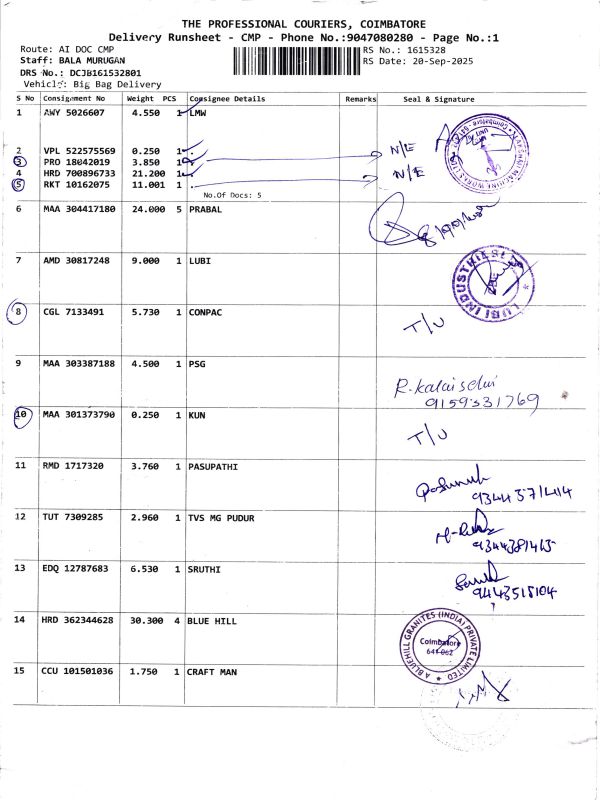 THE PROFESSIONAL COURIERS, COIMBATORE
Delivery Runsheet - CMP - Phone No.:9047080280 - Page No.:1
Route: AI DOC CMP RS No.: 1615328
Staff: BALA MURUGAN RS Date: 20-Sep-2025
DRS No.: DCJB161532801
Vehicle: Big Bag Delivery
S No Consignment No Weight PCS Consignee Details Remarks Seal & Signature
1 AWY 5026607 4.550 1 LMW
2 VPL 522575569 0.250 1 . N/E
3 PRO 18042019 3.850 1 .
4 HRD 700896733 21.200 1 . N/E
5 RKT 10162075 11.001 1 .
No.Of Docs: 5
6 MAA 304417180 24.000 5 PRABAL
7 AMD 30817248 9.000 1 LUBI
LUBI INDUSTRIES
8 CGL 7133491 5.730 1 CONPAC
T/U
9 MAA 303387188 4.500 1 PSG
R. Kalaiselvi
9159331769
10 MAA 301373790 0.250 1 KUN
T/U
11 RMD 1717320 3.760 1 PASUPATHI
12 TUT 7309285 2.960 1 TVS MG PUDUR
9344381415
13 EDQ 12787683 6.530 1 SRUTHI
9443518104
14 HRD 362344628 30.300 4 BLUE HILL
A BLUEHILL GRANITES (INDIA) PRIVATE LIMITED
Coimbatore
641 062
15 CCU 101501036 1.750 1 CRAFT MAN